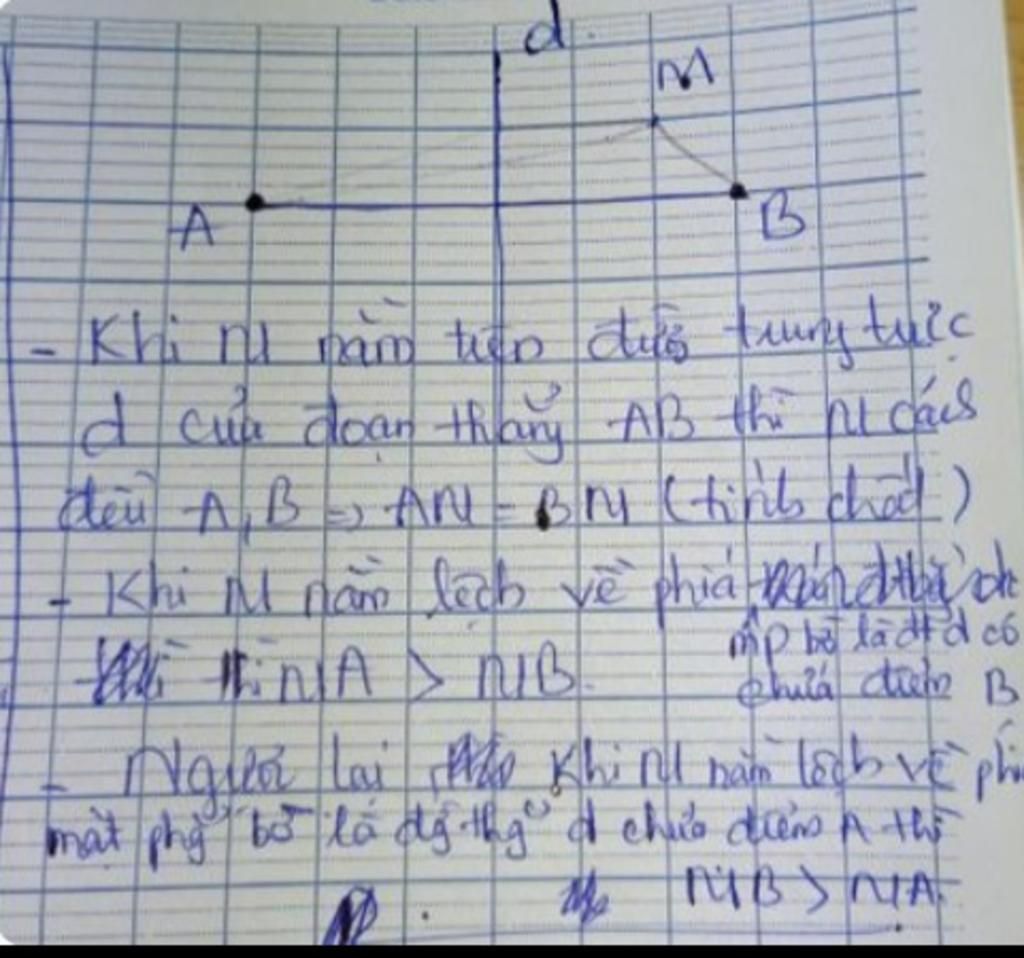 d
M
A
B
- Khi M nằm trên đường trung trực
d của đoạn thẳng AB thì M cách
đều A, B => AM = BM (tính chất)
- Khi M nằm lệch về phía
mp bờ là đt d có
thì MA > MB.
chứa điểm B
- Ngược lại Khi M nằm lệch về phía
mặt phg bờ là đg thg d chứa điểm A thì
MB > MA.